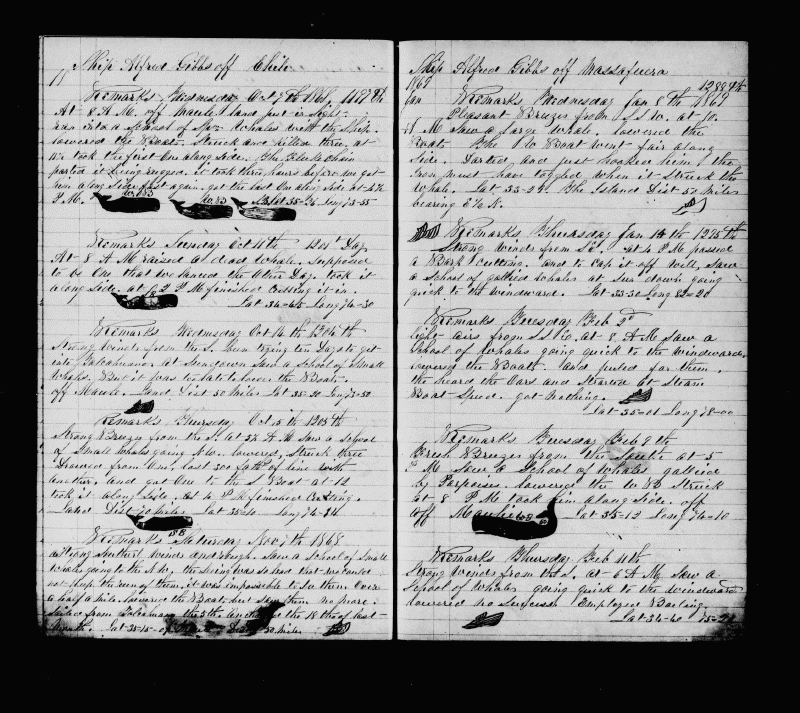 Ship Alfred Gibbs off Chile
Remarks Wednesday Oct 7th 1868
At 8 A.M. off Maule land just in sight
ran into a School of Spm Whales with the Ship.
lowered the Boats. Struck and killed three, at
took the first One along side. The fluke chain
parted it being rugged. it took three hours before we got
him along side fast again. got the last One along side at
P M.
Lat 35-26 Long 73-55
Remarks Sunday Oct 11th 1201st Day
At 8 A M raised a dead Whale. Supposed
to be One that we lanced the Other Day. took it
along side. at P M finished Cutting it in.
Lat 34-45 Long 74-30
Remarks Wednesday Oct 14th 1204th
Strong Winds from the S. been trying ten Days to get
into Talcahuano. at Sundown Saw a School of Small
Whales. But it was to late to lower the Boats.
off Maule. Land Dist 50 Miles Lat 35-20
Remarks Thursday Oct 15th 1205th
Strong Breezes from the S. at A M Saw a School
of Small Whales going lowered, Struck three
Drawed from One, lost 300 of line with
another, and got One to the S Boat at 12
took it along Side. at 4 P M finished Cutting.
Land Dist 70 Miles Lat 35-10 Long 74-24
15 B
Remarks Saturday Nov 7th 1868
Strong Southerl Winds and rough. Saw a School of Small
Whales going to the N W, the Seeing was so bad that we could
not keep the run of them. it was impossible to See them Over
a half a mile. lowered the Boats but Saw them no more.
Sailed from Talcahuano the 5th Anchored the 18th of last
Month. Lat 35-15 Dist 50 Miles
Ship Alfred Gibbs off Massafuera
1869
Jan Remarks Wednesday Jan 8th 1869
Pleasant Breezes from S.S.W. at 10.
A M Saw a large Whale. lowered the
Boats The W Boat went fair along
Side. Darted and just hooked him & the
Iron must have toggled when it Struck the
Whale. Lat 33-25 The Island Dist 52 Miles
bearing E
Remarks Thursday Jan 14th 1295th
Strong Winds from at 4 P M passed
a Bark Cutting. and to Cap it off will, Saw
a School of gallied Whales at Sun down going
quick to the Windward. Lat 33-30 Long 82-20
Remarks Tuesday Feb 2d
light airs from S.S.W. at 8 A M Saw a
School of Whales going quick to the Windward,
lowered the Boats. and pulled for them.
the heard the Oars and Started at Steam
Boat Speed. got nothing.
Lat 35-01 Long 78-00
Remarks Tuesday Feb 9th
Fresh Breezes from the South at 5
P M Saw a School of Whales gallied
by Porpoises. lowered the W B Struck
at 8 P M took him along Side. off
off Maule Lat 35-12 Long 74-10
Remarks Thursday Feb 11th
Strong Winds from the S. at 6 A M Saw a
School of Whales going quick to the Windward
lowered no Success Employed Boiling.
Lat 34-40